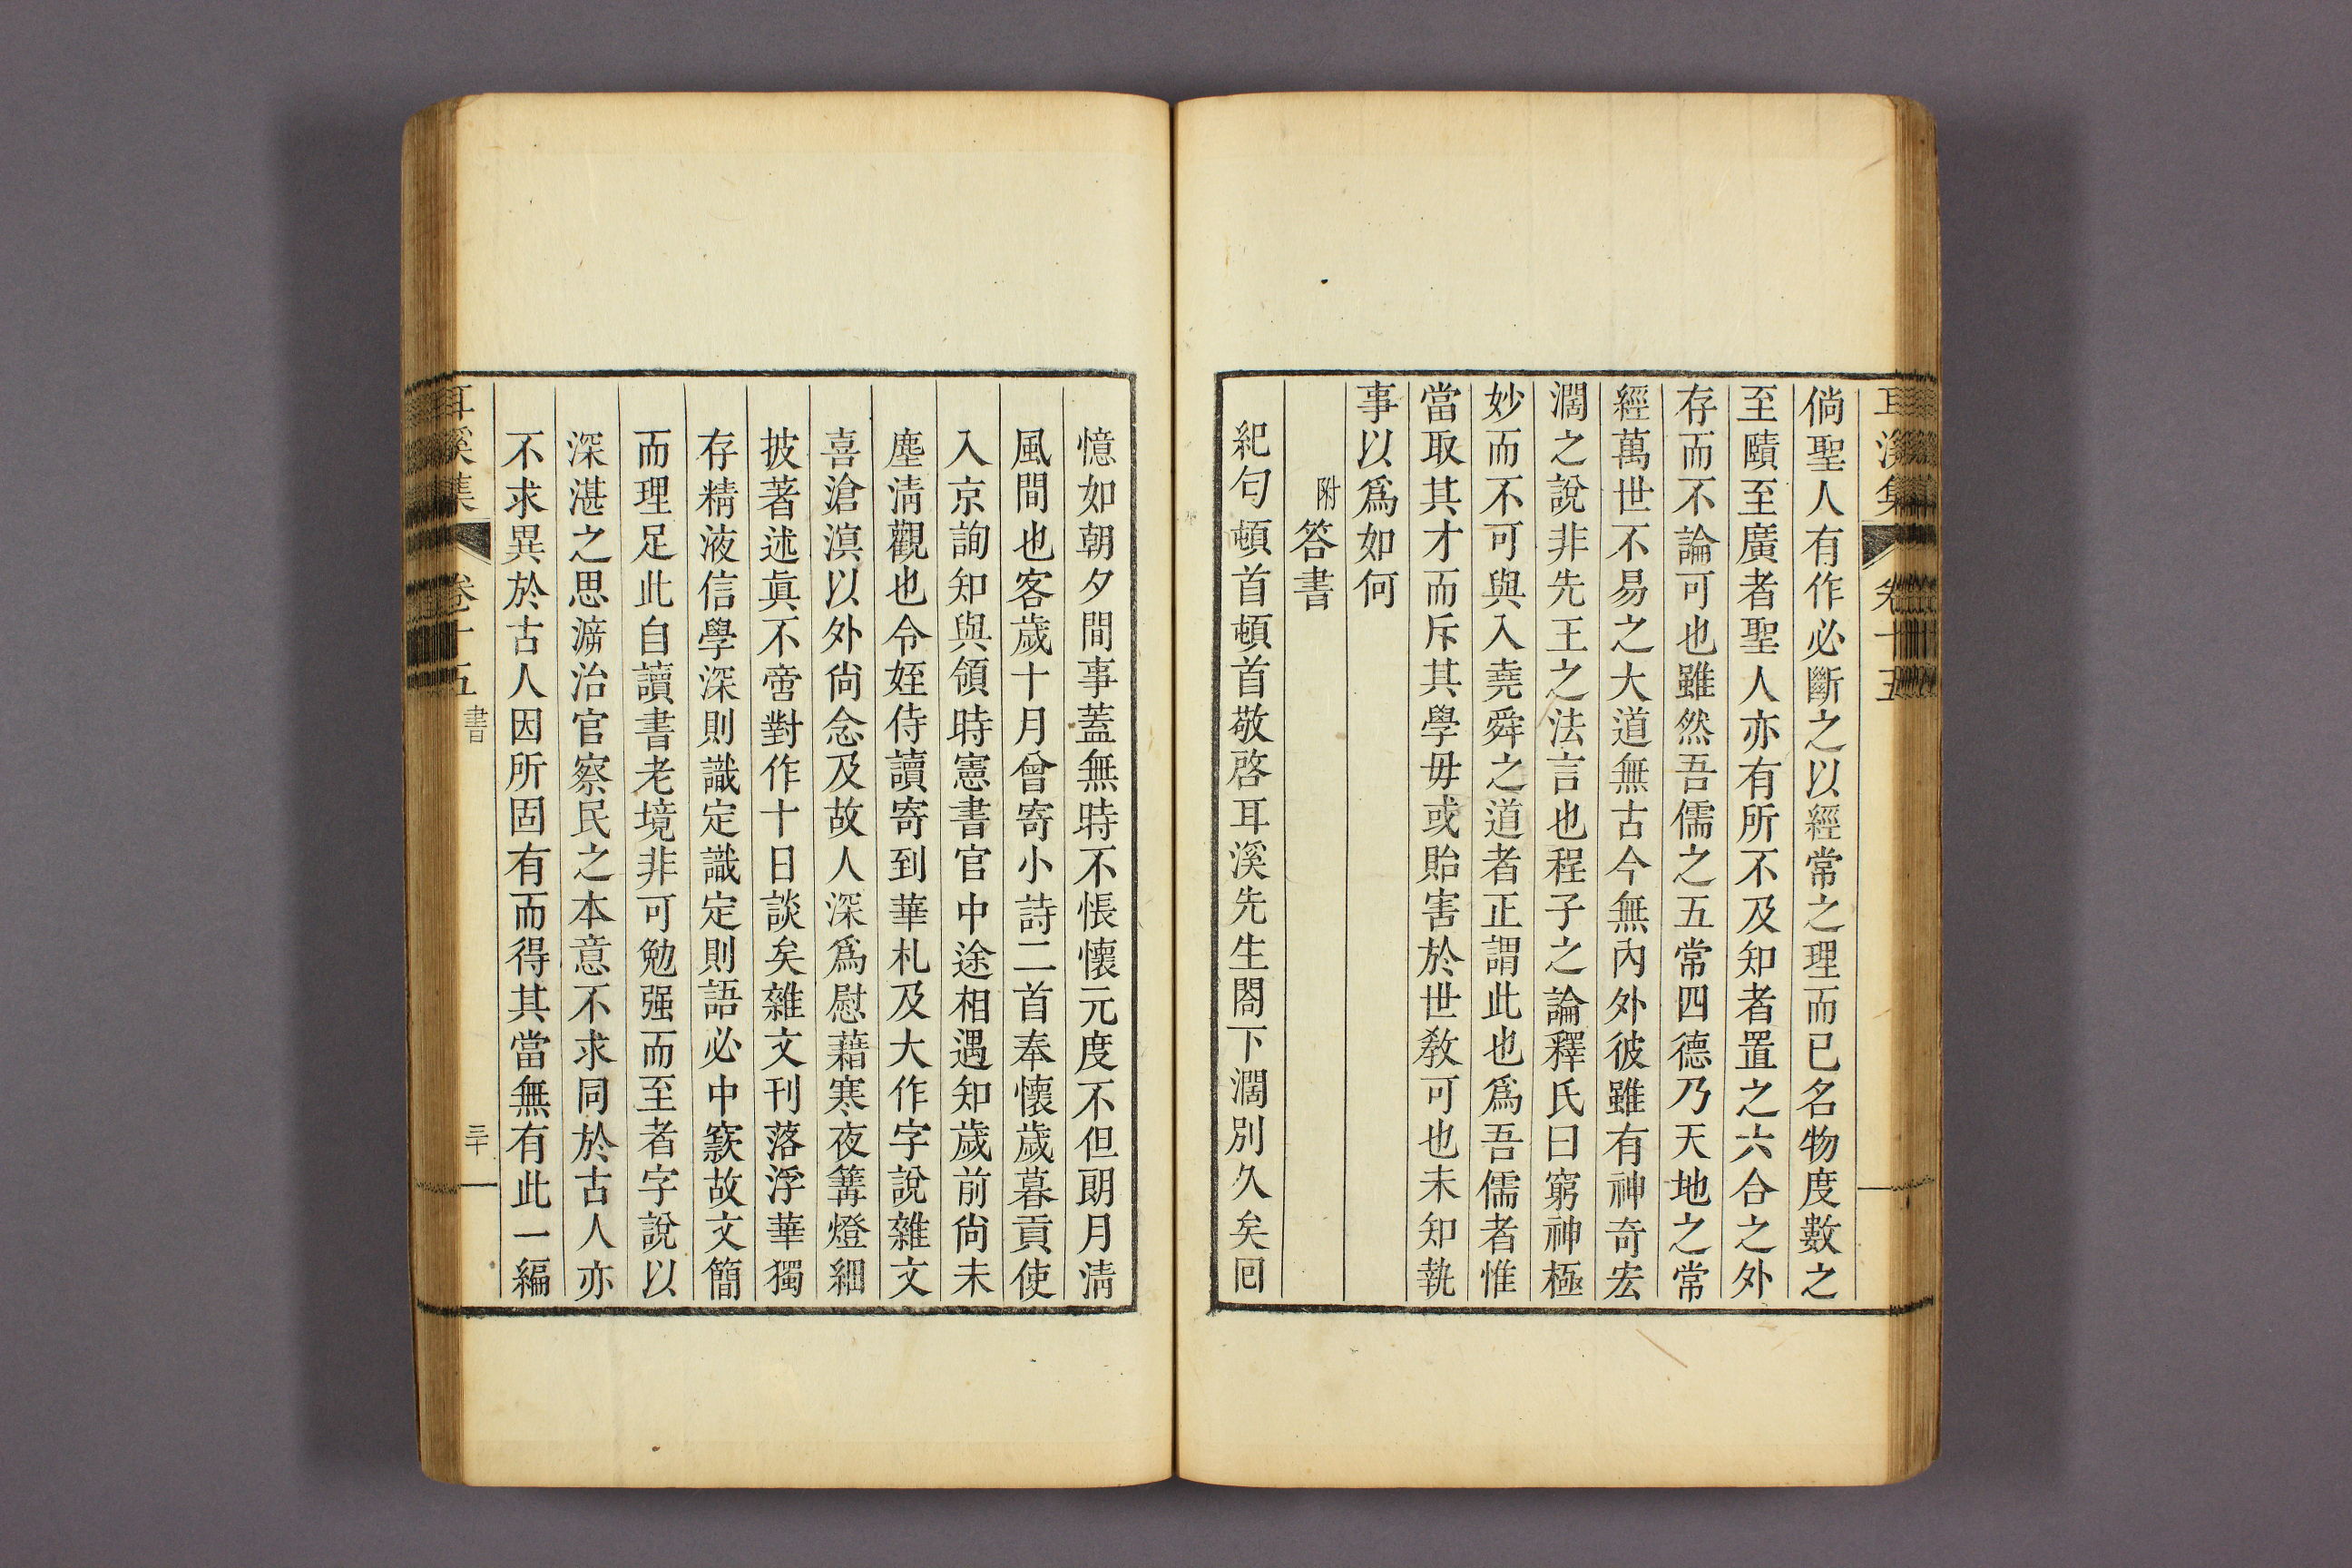 耳溪集 卷十五
倘聖人有作必斷之以經常之理而已名物度數之
至賾至廣者聖人亦有所不及知者置之六合之外
存而不論可也雖然吾儒之五常四德乃天地之常
經萬世不易之大道無古今無內外彼雖有神奇宏
濶之說非先王之法言也程子之論釋氏曰窮神極
妙而不可與入堯舜之道者正謂此也爲吾儒者惟
當取其才而斥其學毋或貽害於世敎可也未知執
事以爲如何
附答書
紀勻頓首頓首敬啓耳溪先生閤下濶別久矣回
憶如朝夕間事蓋無時不悵懷元度不但朗月淸
風間也客歲十月曾寄小詩二首奉懷歲暮貢使
入京詢知與領時憲書官中途相遇知歲前尙未
塵淸觀也令姪侍讀寄到華札及大作字說雜文
喜滄溟以外尙念及故人深爲慰藉寒夜篝燈細
披著述眞不啻對作十日談矣雜文刊落浮華獨
存精液信學深則識定識定則語必中窾故文簡
而理足此自讀書老境非可勉强而至者字說以
深湛之思溯治官察民之本意不求同於古人亦
不求異於古人因所固有而得其當無有此一編
耳溪集 卷十五 書 三十